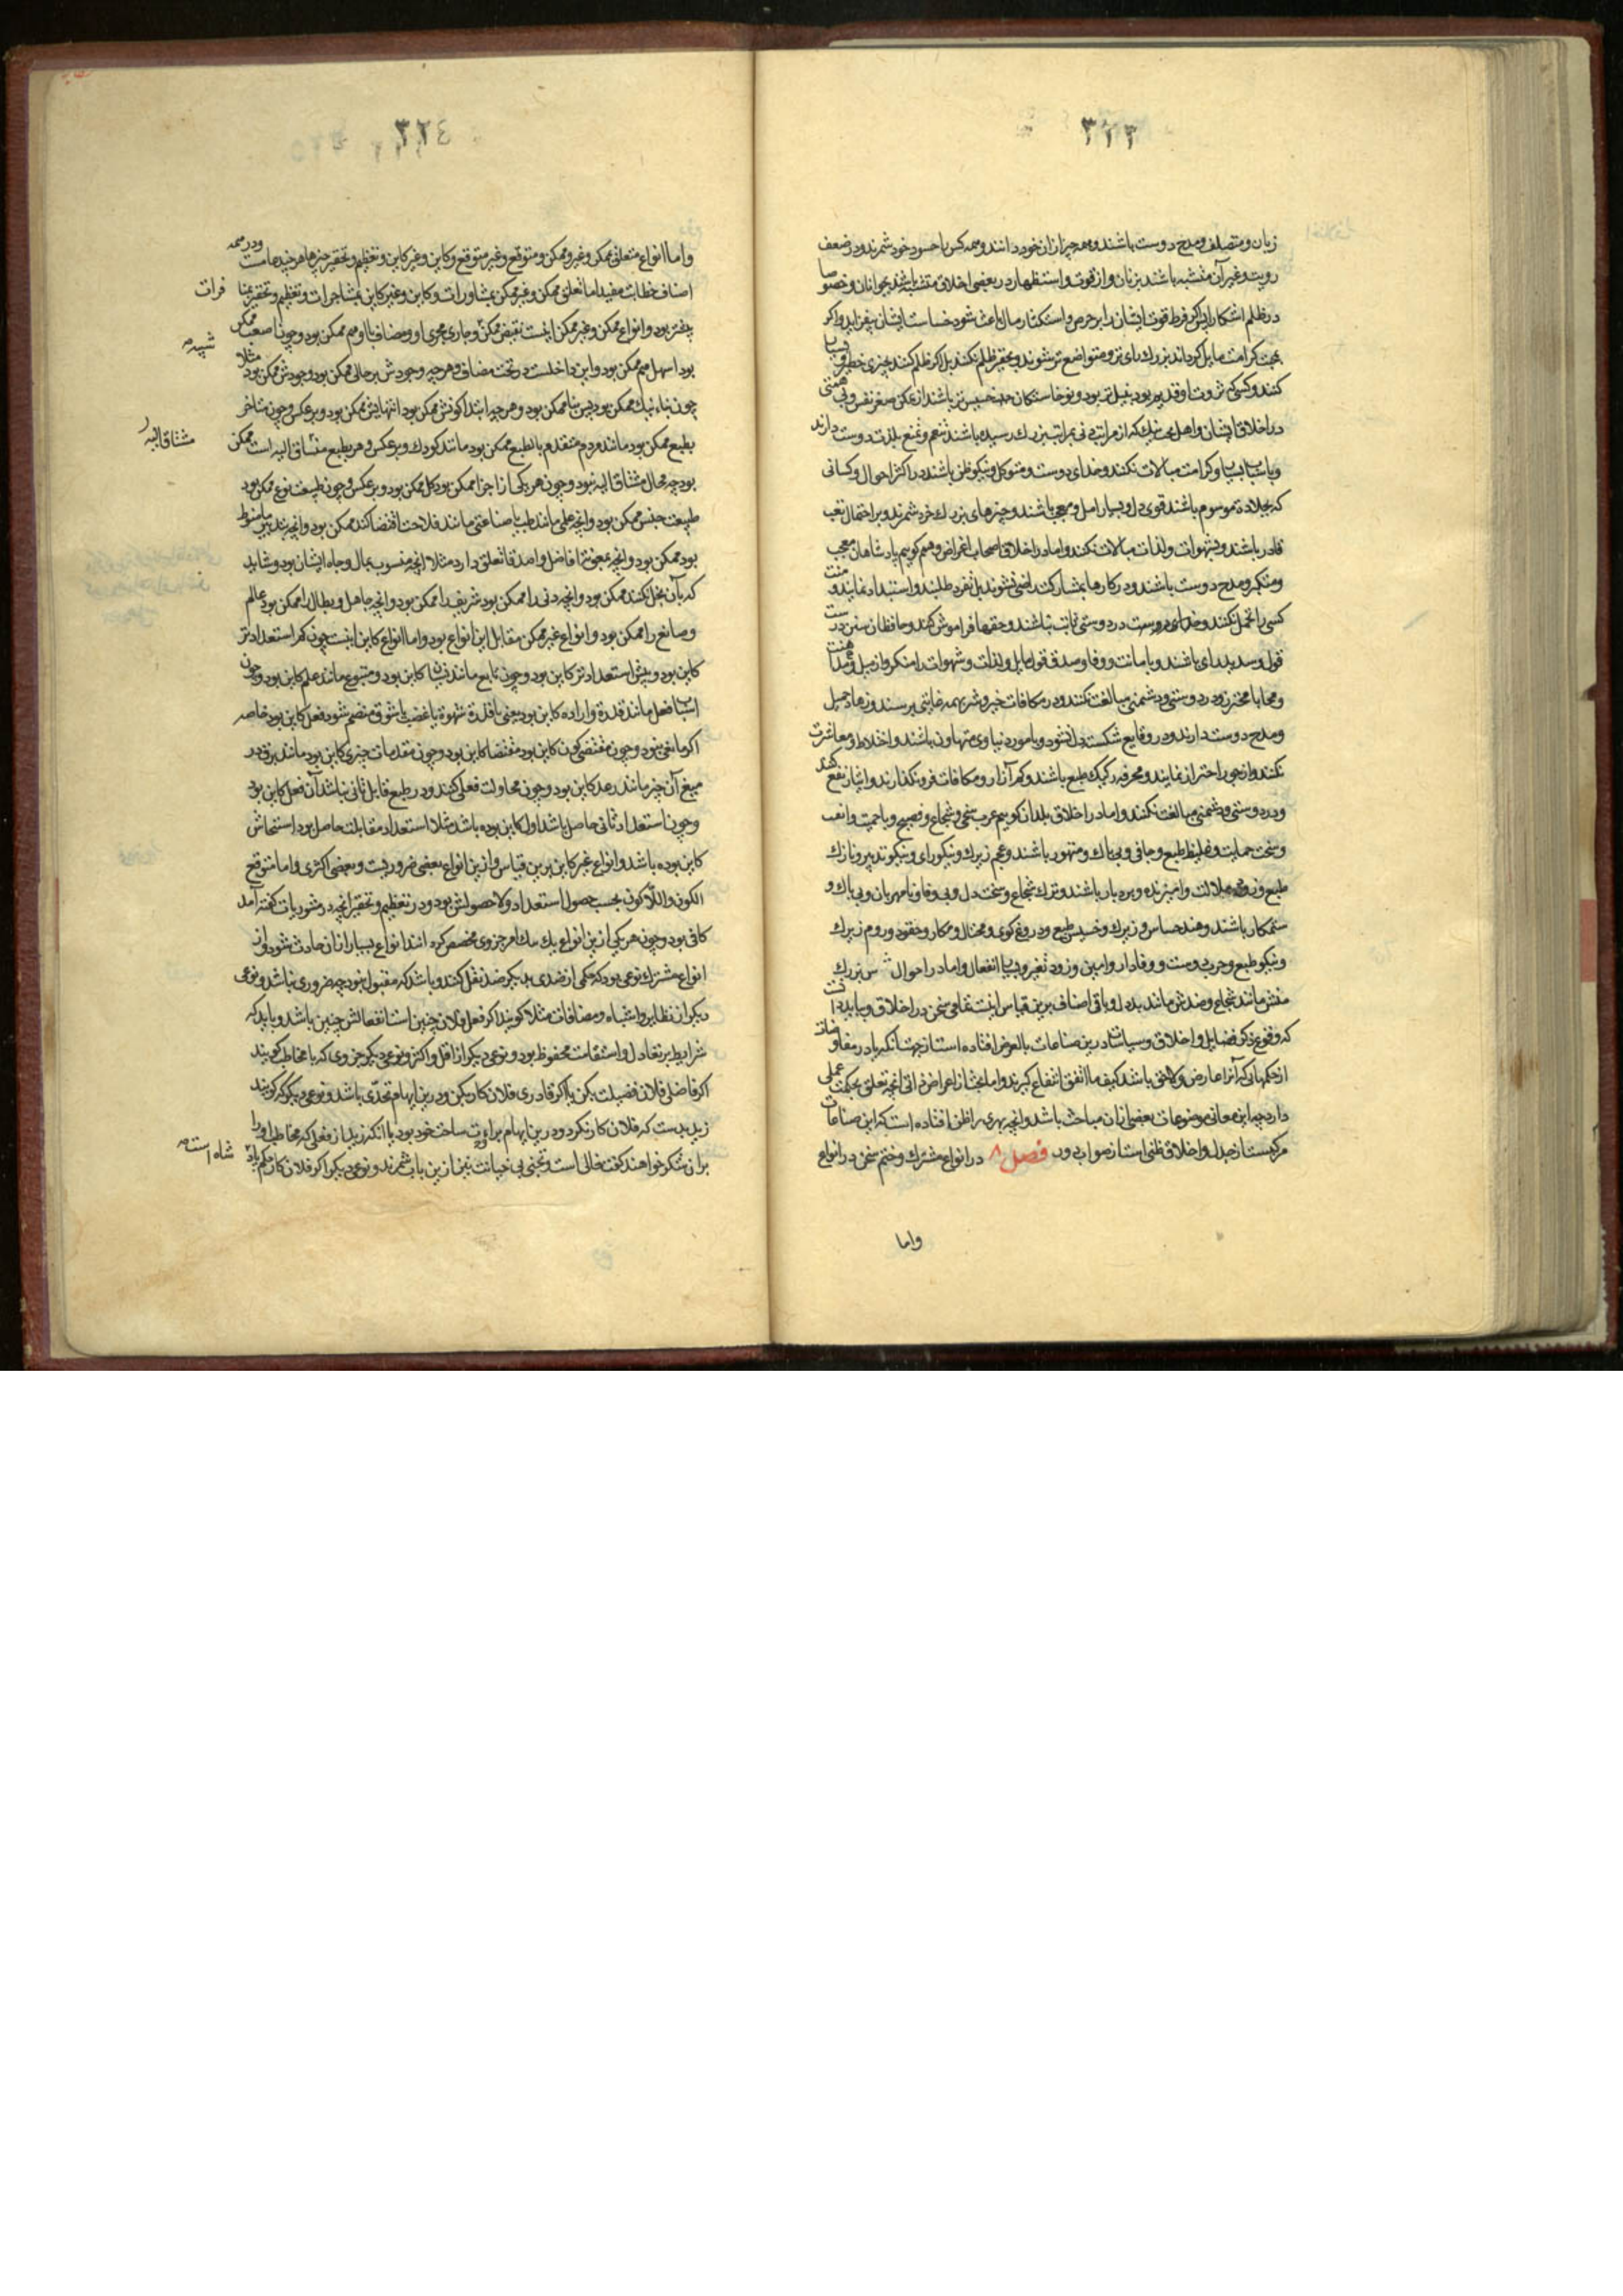 ٣٢٣
زبان و متصلف و مدح دوست باشند و همه چیز از ان خود دانند و همه کس را حسود خود شمرند و در ضعف
رویت و غیر آن متشبه باشند بزنان و ارباب قوت و استظهار در بعضی اخلاق متشبه باشند بجوانان و خصوصا
در ظلم اشکارا پس اگر فرط قوت ایشان را بر حرص و استکثار مال باعث شود خساست ایشان بیفزاید و اگر
بمحبت کرامت مایل گرداند بزرك رای تر و متواضع تر شوند و بحقیر ظلم نکنند بل اگر ظلم کنند بچیزی خطیر
کنند و کسی که ثروت او قدیم بود نبیل تر بود و نوخاستکان خسیس تر باشند از ممکن صغر نفس و بی همتی
در اخلاق ایشان و اهل بخت نیك که از مراتب دنی بمراتب بزرك رسیده باشند تنعم و تمتع بلذت دوست دارند
و باسباب و کرامت مبالات نکنند و خدای دوست و متوکل و نیکو ظن باشند در اکثر احوال و کسانی
که بجلادة موسوم باشند قوی دل و بسیار امل و معجب باشند و چیزهای بزرك خرد شمرند و بر احتمال تعب
قادر باشند و بشهوات و لذات مبالات نکنند و اما در اخلاق اصحاب اغراض و همم کوییم پادشاهان معجب
و متکبر و مدح دوست باشند و در کارها بمشارکت راضی نشوند بل تفرد طلبند و استبداد نمایند و منت
کسی را تحمل نکنند و در دوستی ثابت نباشند و حقها فراموش کنند و حافظان سنن درست
قول و سدید رای باشند و با مانت و وفا و صدق قول مایل و لذات و شهوات را منکر و از میل و مداهنت
و محابا محترز و در دوستی و دشمنی مبالغت نکنند و در مکافات خیر و شر بهمه غایتی برسند و زهاد جمیل
و مدح دوست دارند و در وقایع شکسته دل نشوند و بامور دنیاوی متهاون باشند و اختلاط و معاشرت
نکنند و از جور احتراز نمایند و محترفه رکیك طبع باشند و کم آزار و مکافات فرو نکذارند و ایثار نفع کنند
و در دوستی و دشمنی مبالغت نکنند و اما در اخلاق بلدان کوییم عرب سخی و شجاع و فصیح و با حمیت و انفت
و سخت حمایت و غلیظ طبع و جافی و بی باك و متهور باشند و عجم زیرك و نیکو رای و نیکو تدبیر و نازك
طبع و زود ملالت و امیزنده و بردبار باشند و ترك شجاع و سخت دل و بی وفا و نامهربان و بی باك و
ستمکار باشند و هند حساس و زیرك و خسیس طبع و دروغ کوی و محتال و مکار و حقود و روم زیرك
و نیکو طبع و حرب دوست و وفادار و امین و زود تغیر و بسیار انفعال و اما در احوال بزرك
منش مانند شجاع و ضدش مانند بددل و باقی اصناف برین قیاس اینست تمامی سخن در اخلاق و بباید دانست
که وقوع ذکر فضایل و اخلاق و سیاسات درین صناعات بالعرض افتاده است از جهت انکه تا در مفاوضات
از حکمهای که آنرا عارض و لاحق باشد کیف ما اتفق انتفاع کیرند و اما بحث از اعراض ذاتی انچه تعلق بحکمت عملی
دارد چه این معانی موضوعات بعضی از ان مباحث باشد و انچه بهری را ظن افتاده است که این صناعات
مرکبست از جدل و اخلاق ظنی است از صواب دور فصل ٨ در انواع مشترك و ختم سخن در انواع
واما
٣٢٤
واما انواع متعلق بممکن و غیر ممکن و متوقع و غیر متوقع و کاین و غیر کاین و تعظیم و تحقیر چیزها هر چند همه در
اصناف خطابت مفید اما تعلق ممکن و غیر ممکن بمشاورات و کاین و غیر کاین بمشاجرات و تعظیم و تحقیر بمنا فرات
بیشتر بود و انواع ممکن و غیر ممکن اینست نقیض ممکن و جاری مجری او و مضاف با او هم ممکن بود و چون اصعب ممکن
بود اسهل هم ممکن بود و این داخلست در تحت مضاف و هر چه وجودش بر حالی ممکن بود وجودش ممکن بود مثلا
چون بناء نیك ممکن بود پس بنا ممکن بود و هر چه ابتدا کونش ممکن بود انتهایش ممکن بود و بر عکس و چون متاخر
بطبع ممکن بود مانند مردم متقدم بالطبع ممکن بود مانند کودك و بر عکس و هر بطبع مشتاق الیه است ممکن
بود چه محال مشتاق الیه نبود و چون هر یکی از اجزا ممکن بود کل ممکن بود و بر عکس و چون طبیعت نوع ممکن بود
طبیعت جنس ممکن بود و انچه علمی مانند طب یا صناعتی مانند فلاحت اقتضا کند ممکن بود و انچه بتدبیر ما منوط
بود ممکن بود و انچه بمعونة افاضل و اصدقا تعلق دارد مثلا انچه منسوب بمال و جاه ایشان بود و شاید
که بآن بخل نکنند ممکن بود و انچه دنی را ممکن بود شریف را ممکن بود و انچه جاهل و بطال را ممکن بود عالم
و صانع را ممکن بود و انواع غیر ممکن مقابل این انواع بود و اما انواع کاین اینست چون کم استعداد تر
کاین بود و بیش استعداد تر کاین بود و چون تابع مانند نسیان کاین بود و متبوع مانند علم کاین بود و چون
اسباب فعل مانند قدرة و اراده کاین بود یعنی با قدرة شهوة یا غضب یا شوق منضم شود فعل کاین بود خاصه
اکر مانعی نبود و چون مقتضی کون کاین بود مقتضا کاین بود و چون مقدمات چیزی کاین بود مانند برق در
میغ آن چیز مانند رعد کاین بود و چون محاولت فعلی کنند و در طبع قابل تانی نباشد آن فعل کاین بود
و چون استعداد ثانی حاصل باشد اول کاین بوده باشد مثلا استعداد مقابلت حاصل بود استیحاش
کاین بوده باشد و انواع غیر کاین برین قیاس و از ین انواع بعضی ضروریست و بعضی اکثری و اما متوقع
الکون و اللا کون بحسب حصول استعداد و لاحصولش بود و در تعظیم و تحقیر انچه در مشوریات کفته آمد
کافی بود و چون هر یکی از ین انواع بیك یك امر جزوی مخصص کرده انند انواع بسیار از ان حادث شود و از
انواع مشترك نوعی بود که حکمی از ضدی بدیکر ضد نقل کنند و باشد که مقبول نبود چه ضروری نباشد و نوعی
دیکر از نظایر و اشباه و مضافات مثلا کویند اکر فعل فلان چنین است انفعالش چنین باشد و باید که
شرایط بر تعادل و استقامت محفوظ بود و نوعی دیکر از اقل و اکثر و نوعی دیکر جزوی که با مخاطب کویند
اکر فاضلی فلان فضیلت بکن یا اکر قادری فلان کار بکن و درین ایهام تحدی باشد و نوعی دیکر که کویند
زید بدست که فلان کار نکرد و درین ایهام براءت ساحت خود بود یا انکه زید از فعلی که مخاطب او را
بران شکر خواهند کفت خالی است و تجنی بی خیانت نیز از ین باب شمرند و نوعی دیکر اکر فلان کار حکم باد
شبیه
مشتاق الیه
شاه است